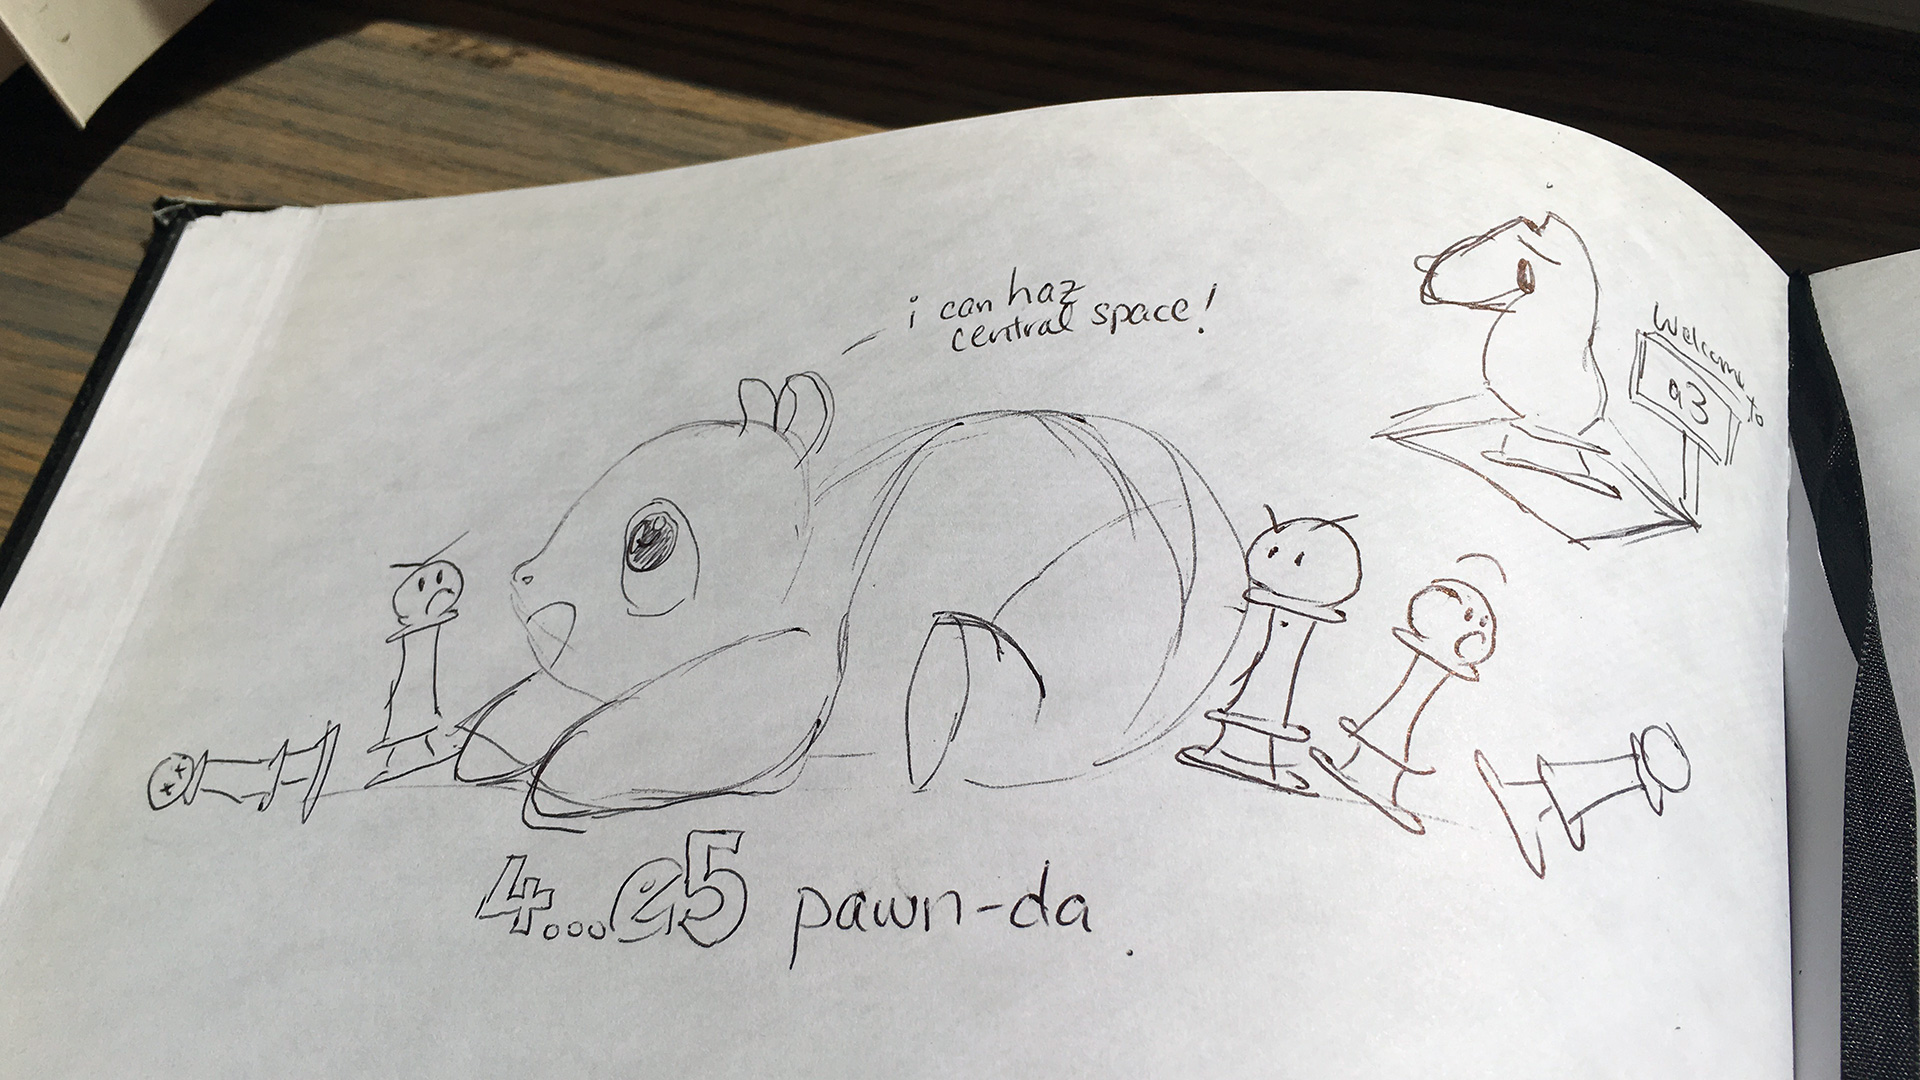 i can haz
central space!
Welcome to
a3
4...e5 pawn-da